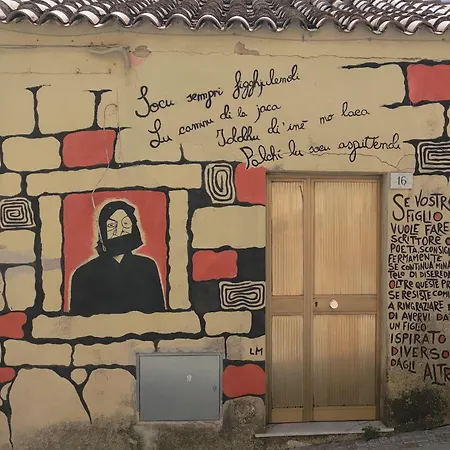 Socu sempri figghjulendi
Lu caminu di la jaca
Iddu di'inè no laca
Palchì lu socu aspittendi
16
SE VOSTRO
FIGLIO
VUOLE FARE
SCRITTORE O
POETA, SCONSIG
FERMAMENTE.
SE CONTINUA MINA
TELO DI DISEREDA
OLTRE QUESTE PR
SE RESISTE COMI
A RINGRAZIARE
DI AVERVI DA
UN FIGLIO
ISPIRATO
DIVERSO
DAGLI ALTR
LM